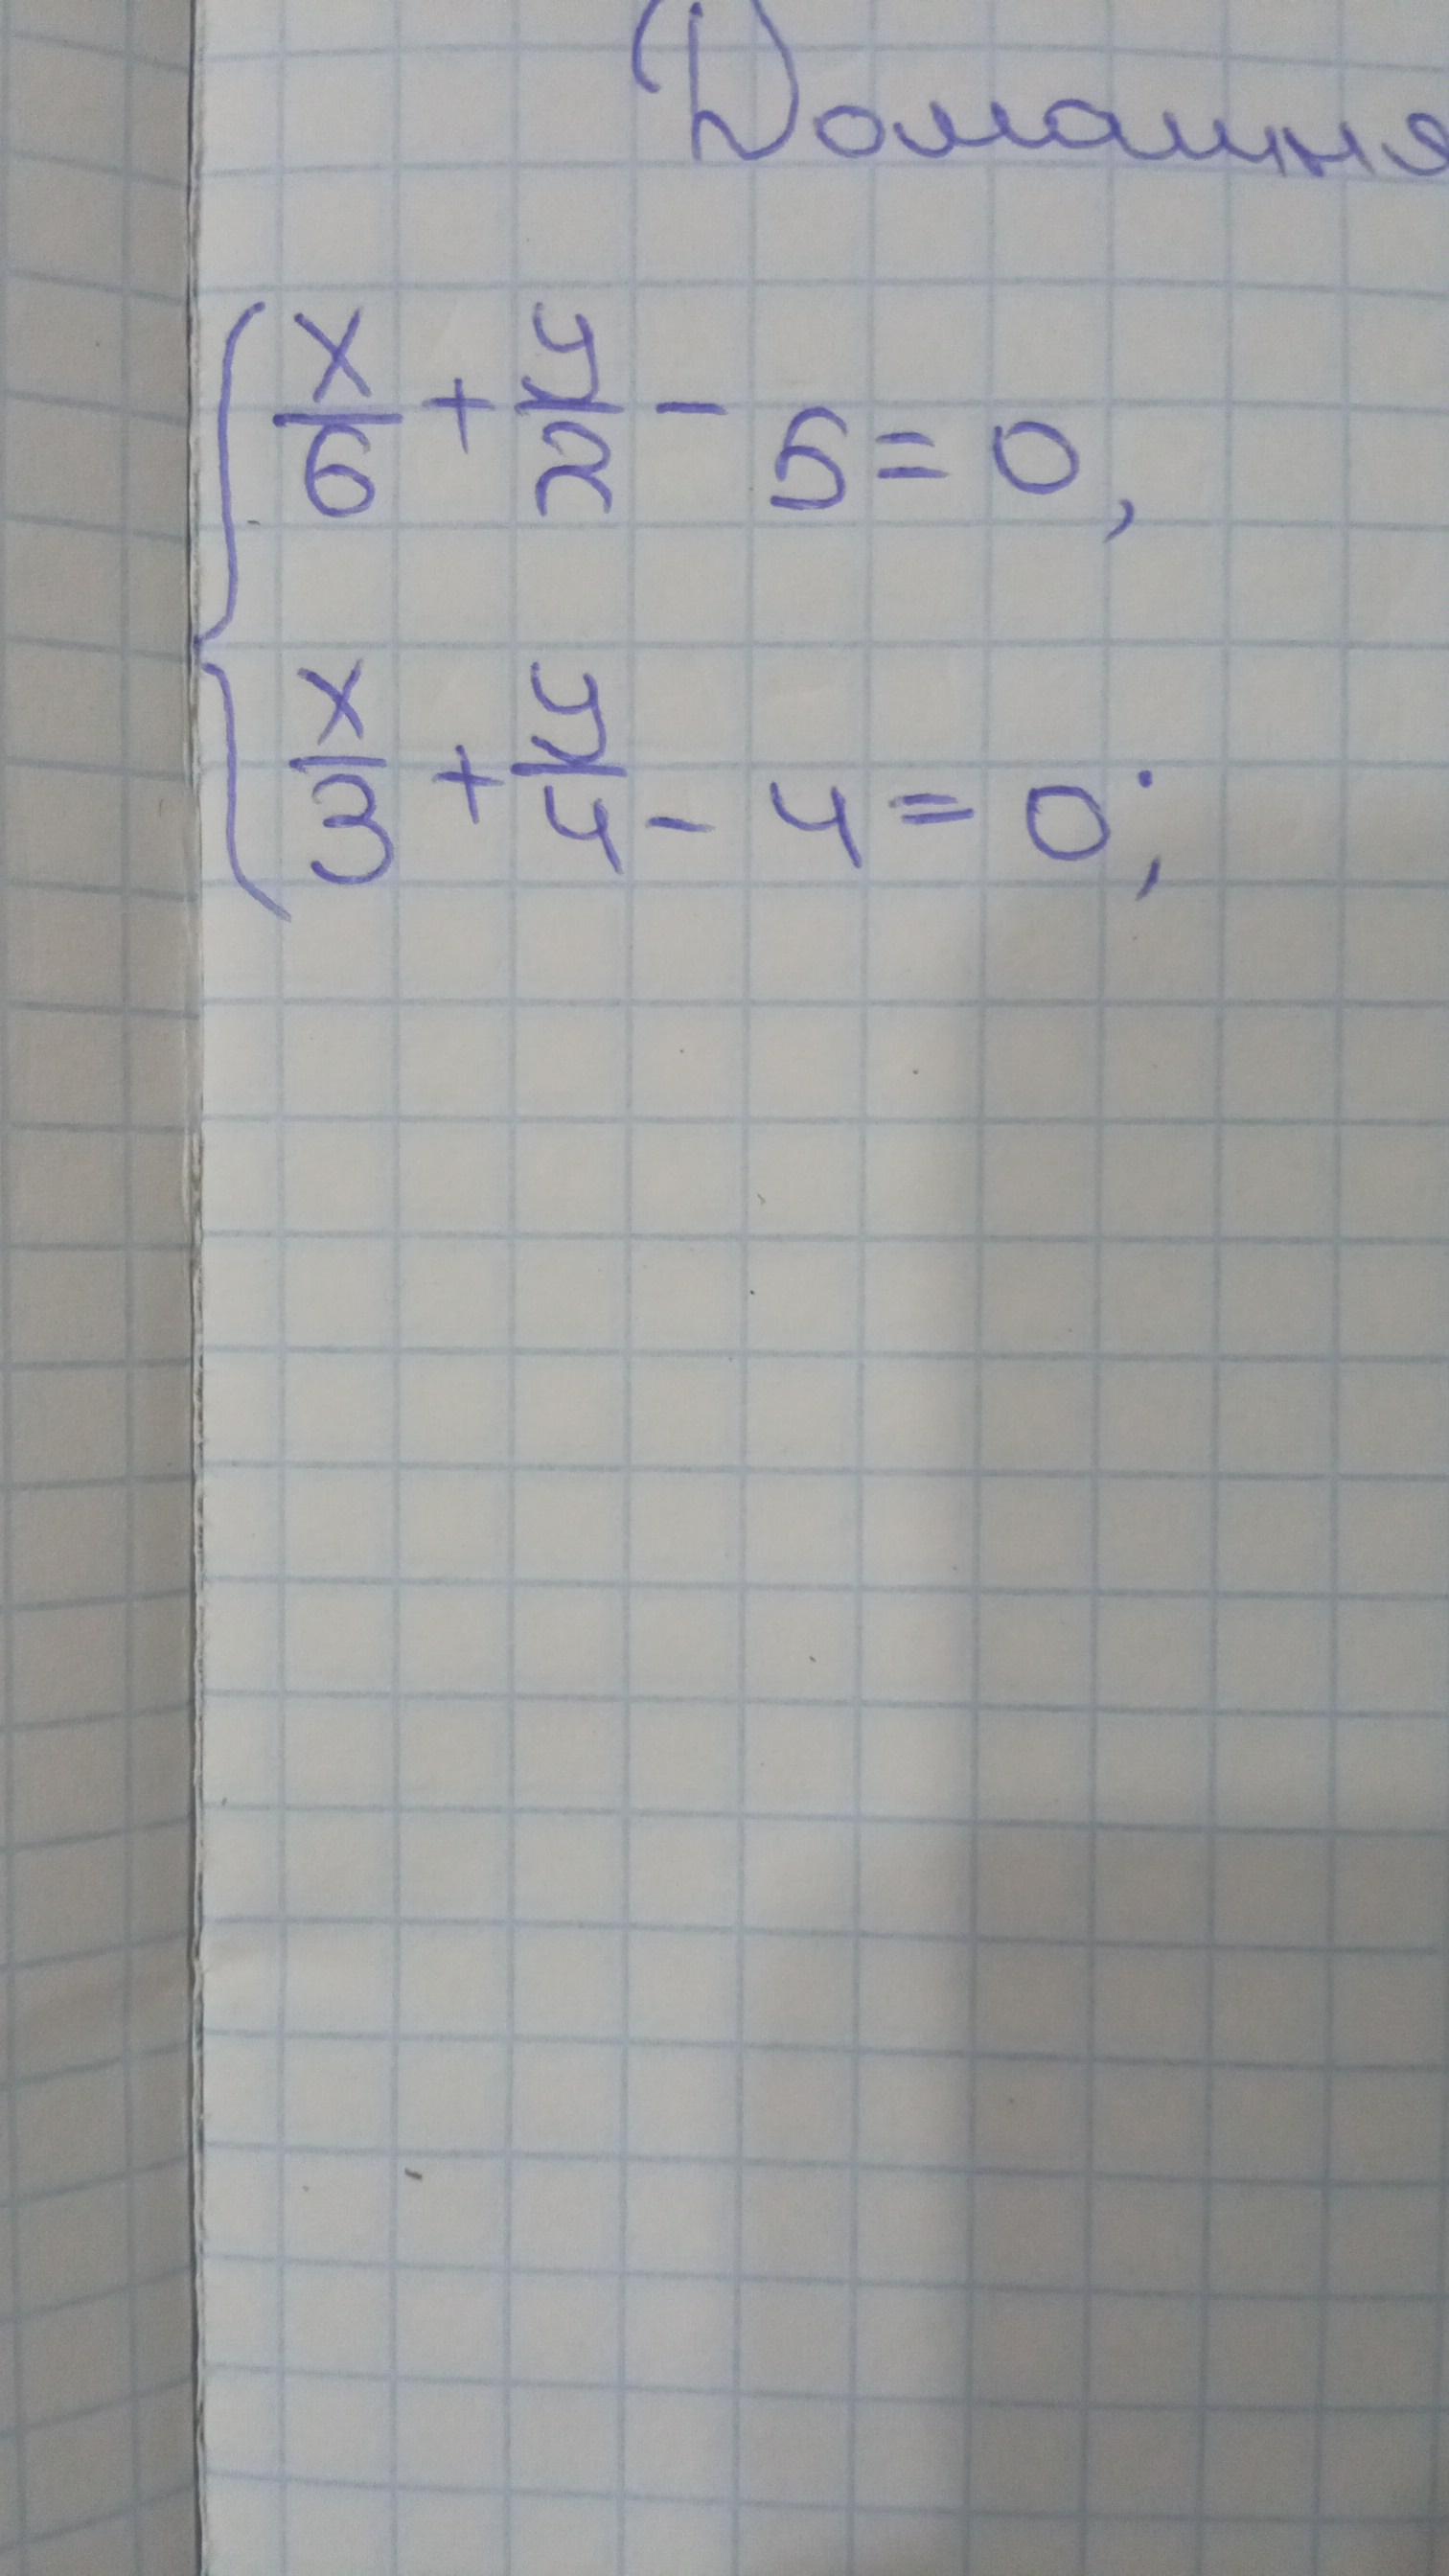 Домашня
x/6 + y/2 - 5 = 0,
x/3 + y/4 - 4 = 0;